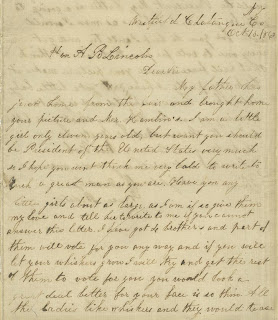 NY
Westfield Chatauque Co
Oct 15. 1860
Hon A B Lincoln
Dear Sir
My father has
just home from the fair and brought home
your picture and Mr. Hamlin's. I am a little
girl only eleven years old, but want you should
be President of the United States very much
so I hope you wont think me very bold to write to
such a great man as you are. Have you any
little girls about as large as I am if so give them
my love and tell her to write to me if you cannot
answer this letter. I have got 4 brothers and part of
them will vote for you any way and if you will
let your whiskers grow I will try and get the rest
of them to vote for you you would look a
great deal better for your face is so thin. All
the ladies like whiskers and they would tease